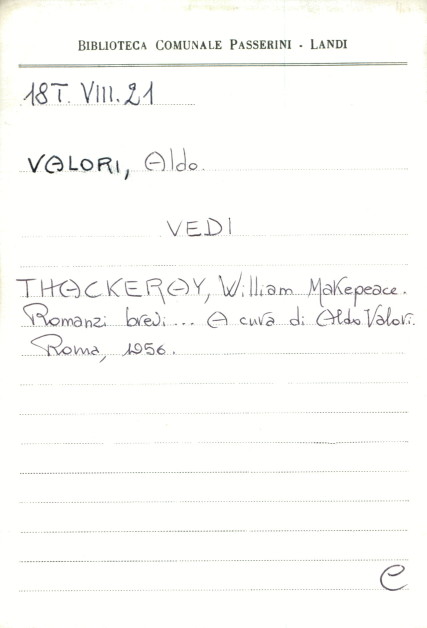 BIBLIOTECA COMUNALE PASSERINI - LANDI
18T. VIII. 21
VALORI, Aldo.
VEDI
THACKERAY, William Makepeace.
Romanzi brevi... A cura di Aldo Valori.
Roma, 1956.
C